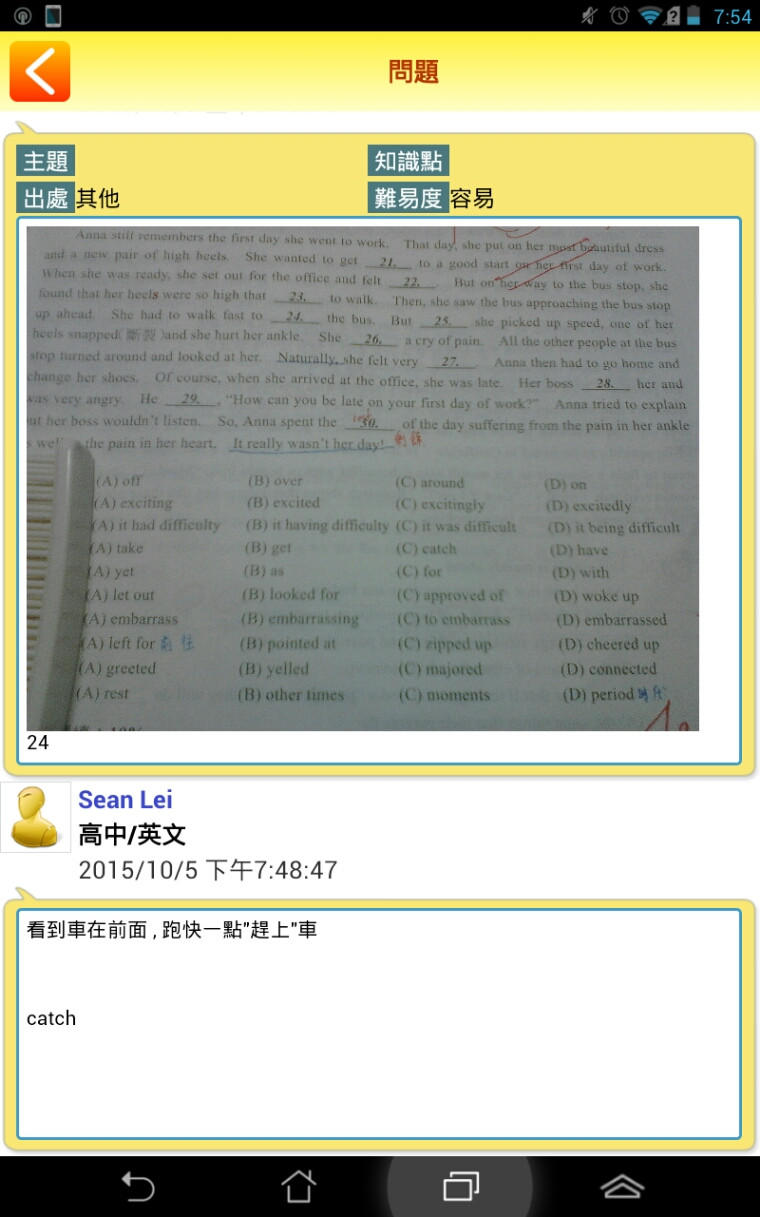 7:54
問題
主題
知識點
出處其他
難易度容易
Anna still remembers the first day she went to work. That day, she put on her most beautiful dress
and a new pair of high heels. She wanted to get 21. to a good start on her first day of work.
When she was ready, she set out for the office and felt 22. . But on her way to the bus stop, she
found that her heels were so high that 23. to walk. Then, she saw the bus approaching the bus stop
up ahead. She had to walk fast to 24. the bus. But 25. she picked up speed, one of her
heels snapped(斷裂)and she hurt her ankle. She 26. a cry of pain. All the other people at the bus
stop turned around and looked at her. Naturally, she felt very 27. . Anna then had to go home and
change her shoes. Of course, when she arrived at the office, she was late. Her boss 28. her and
was very angry. He 29. , “How can you be late on your first day of work?” Anna tried to explain
ut her boss wouldn't listen. So, Anna spent the 30. of the day suffering from the pain in her ankle
s wel the pain in her heart. It really wasn't her day!
(A) off (B) over (C) around (D) on
(A) exciting (B) excited (C) excitingly (D) excitedly
(A) it had difficulty (B) it having difficulty (C) it was difficult (D) it being difficult
(A) take (B) get (C) catch (D) have
(A) yet (B) as (C) for (D) with
(A) let out (B) looked for (C) approved of (D) woke up
(A) embarrass (B) embarrassing (C) to embarrass (D) embarrassed
(A) left for 前往 (B) pointed at (C) zipped up (D) cheered up
(A) greeted (B) yelled (C) majored (D) connected
(A) rest (B) other times (C) moments (D) period 時代
24
Sean Lei
高中/英文
2015/10/5 下午7:48:47
看到車在前面 , 跑快一點"趕上"車
catch